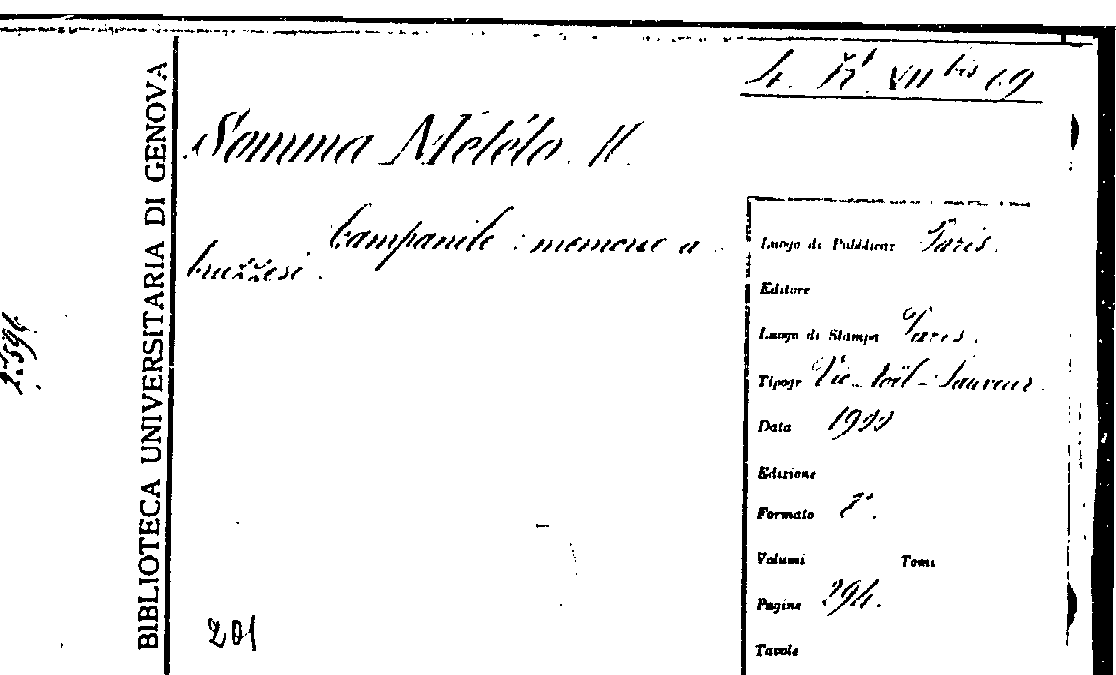 4. K¹. VII bis 69
BIBLIOTECA UNIVERSITARIA DI GENOVA
Somma Melélo. M.
Campanile : memorie a
bruzzesi.
Luogo di Pubblicaz Paris.
Editore
Luogo di Stampa Paris.
Tipogr Vic-Toïl-Sauveur.
Data 1922
Edizione
Formato 8°.
Volumi Tomi
Pagine 294.
Tavole
201